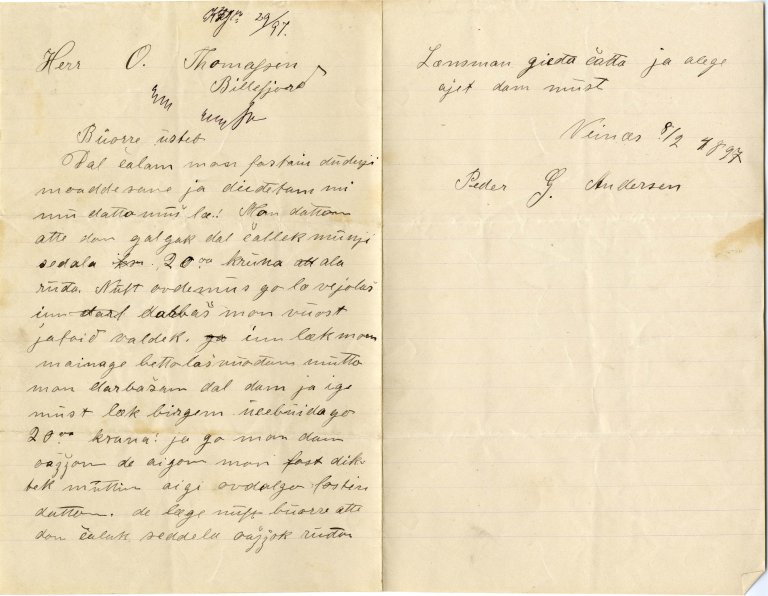 29/97.
Herr O. Thomassen
Billefjord
Buorre usteb
Dal calam mon fastain dudnji
moaddesane ja diedetam mi
mu datto must læ! Mon dattom
atte don galgak dal čallek munji
sedala 20 00 kruna ala
ruđa. Nuft ovdemus go la vejolaš
im dabbaš mon vuost
jafoid valdek. im læk mon
mainage bettolašvuođam mutto
mon darbašam dal dam ja ige
must læk birgem ucebuida go
20 00 kruna! ja go mon dam
oažžom de aigom mon fast dik-
tek muttin aigi ovdalgo fastin
dattom. de læge nuft buorre atte
don čalak seddela oažžok ruđa
Lænsman gieđa čađa ja alege
ajet dam must
Veinæs 8/2 1897
Peder G. Andersen